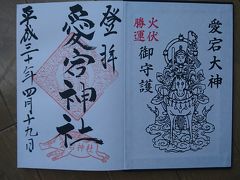 愛宕大神
火伏
勝運
御守護
登拝
愛宕神社
平成三十年四月十九日